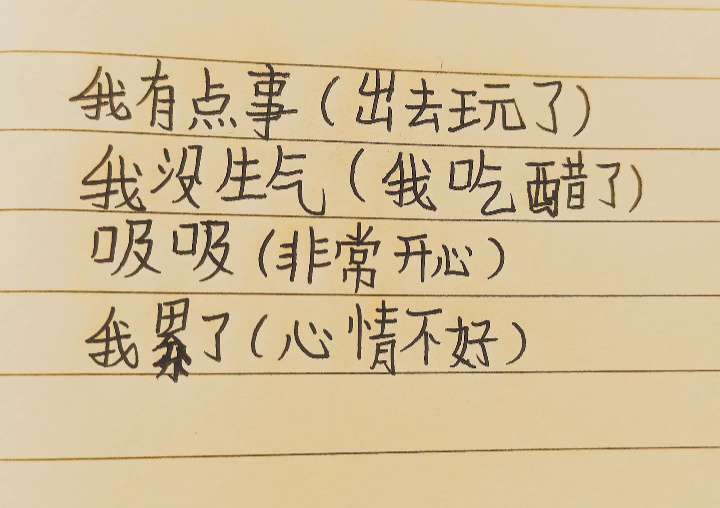 我有点事(出去玩了)
我没生气(我吃醋了)
吸吸(非常开心)
我累了(心情不好)